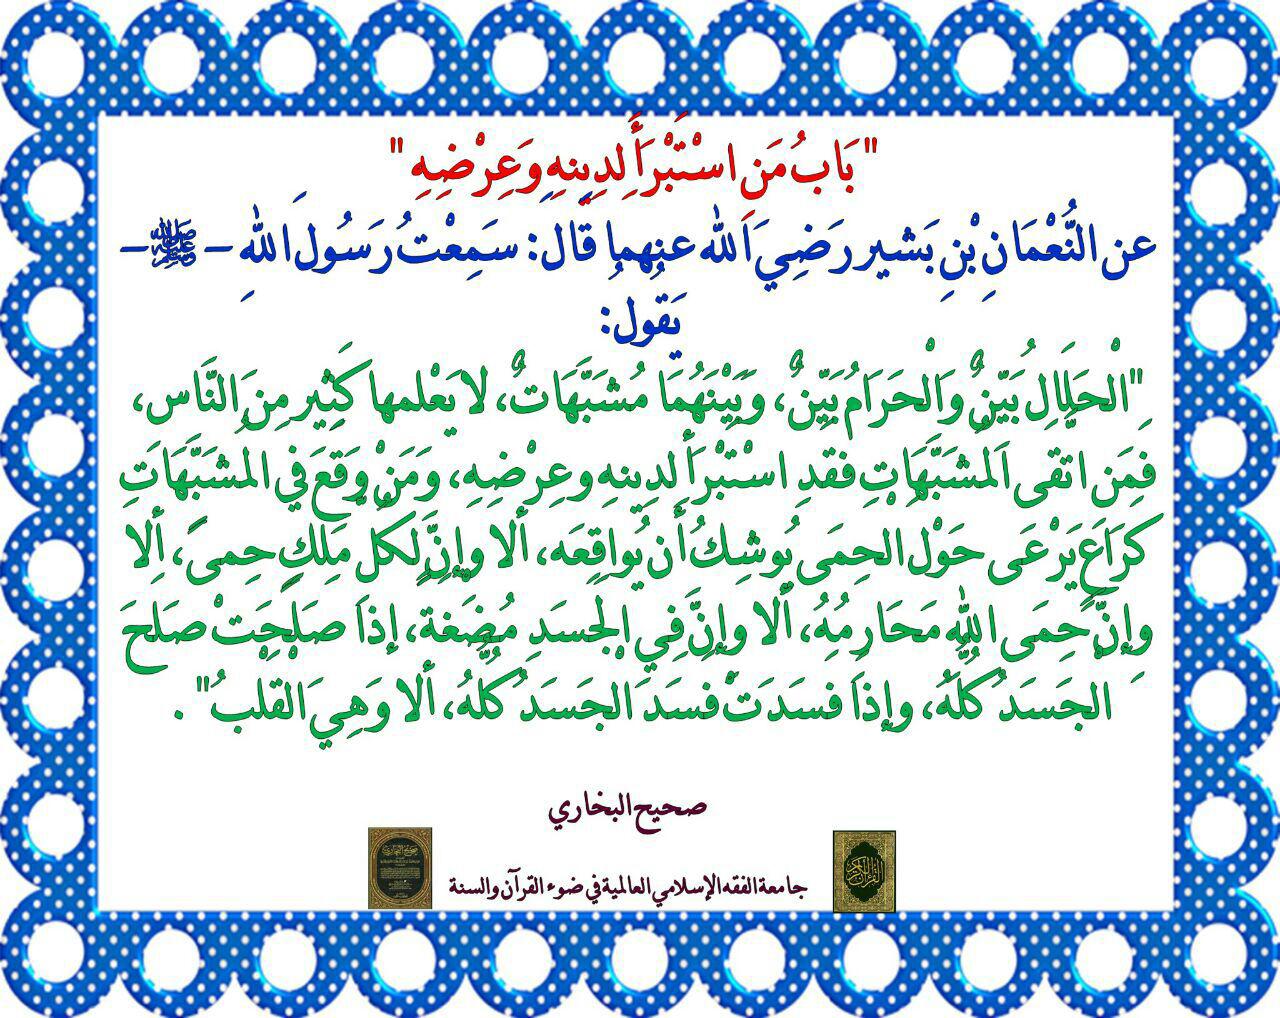 "بَابُ مَنِ اسْتَبْرَأَ لِدِينِهِ وَعِرْضِهِ"
عن النُّعْمَانِ بْنِ بَشير رَضِيَ الله عنهما قال: سَمِعْتُ رَسُولَ اللهِ – ﷺ –
يَقُولُ:
"الْحَلَالِ بَيِّنٌ وَالْحَرَامُ بَيِّنٌ، وَبَيْنَهُمَا مُشَبَّهَاتٌ، لا يَعْلمها كَثِير مِنَ النَّاس،
فمَن اتقى المشَبَّهَاتِ فقد اسْتبْرأ لِدِينه وعِرْضهِ، وَمَنْ وَقعَ في المشَبَّهَاتِ
كرَاعٍ يَرْعَى حَوْل الحِمَى يُوشِكُ أن يُواقِعَه، ألا وإنَّ لِكلِّ مَلِكٍ حِمىً، ألا
وإنَّ حِمَى اللهِ مَحَارِمُهُ، ألا وإنَّ فِي الْجسَدِ مُضغة، إذا صَلَحَتْ صَلحَ
الجَسَدُ كلُّهُ، وإذا فسَدَتْ فسَدَ الجَسَدُ كلُّهُ، ألا وَهِيَ القلبُ".
صحيح البخاري
صحيح البخاري
القرآن الكريم
جامعة الفقه الإسلامي العالمية في ضوء القرآن والسنة